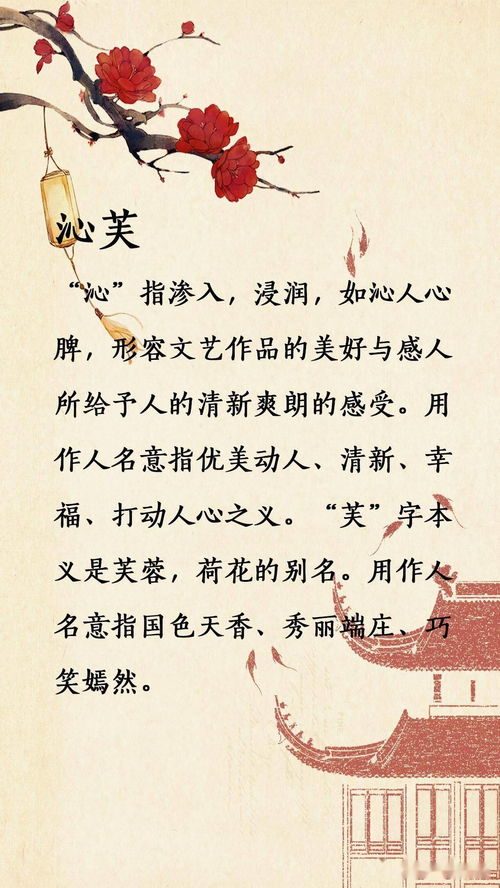 沁芙
“沁”指渗入，浸润，如沁人心
脾，形容文艺作品的美好与感人
所给予人的清新爽朗的感受。用
作人名意指优美动人、清新、幸
福、打动人心之义。“芙”字本
义是芙蓉，荷花的别名。用作人
名意指国色天香、秀丽端庄、巧
笑嫣然。